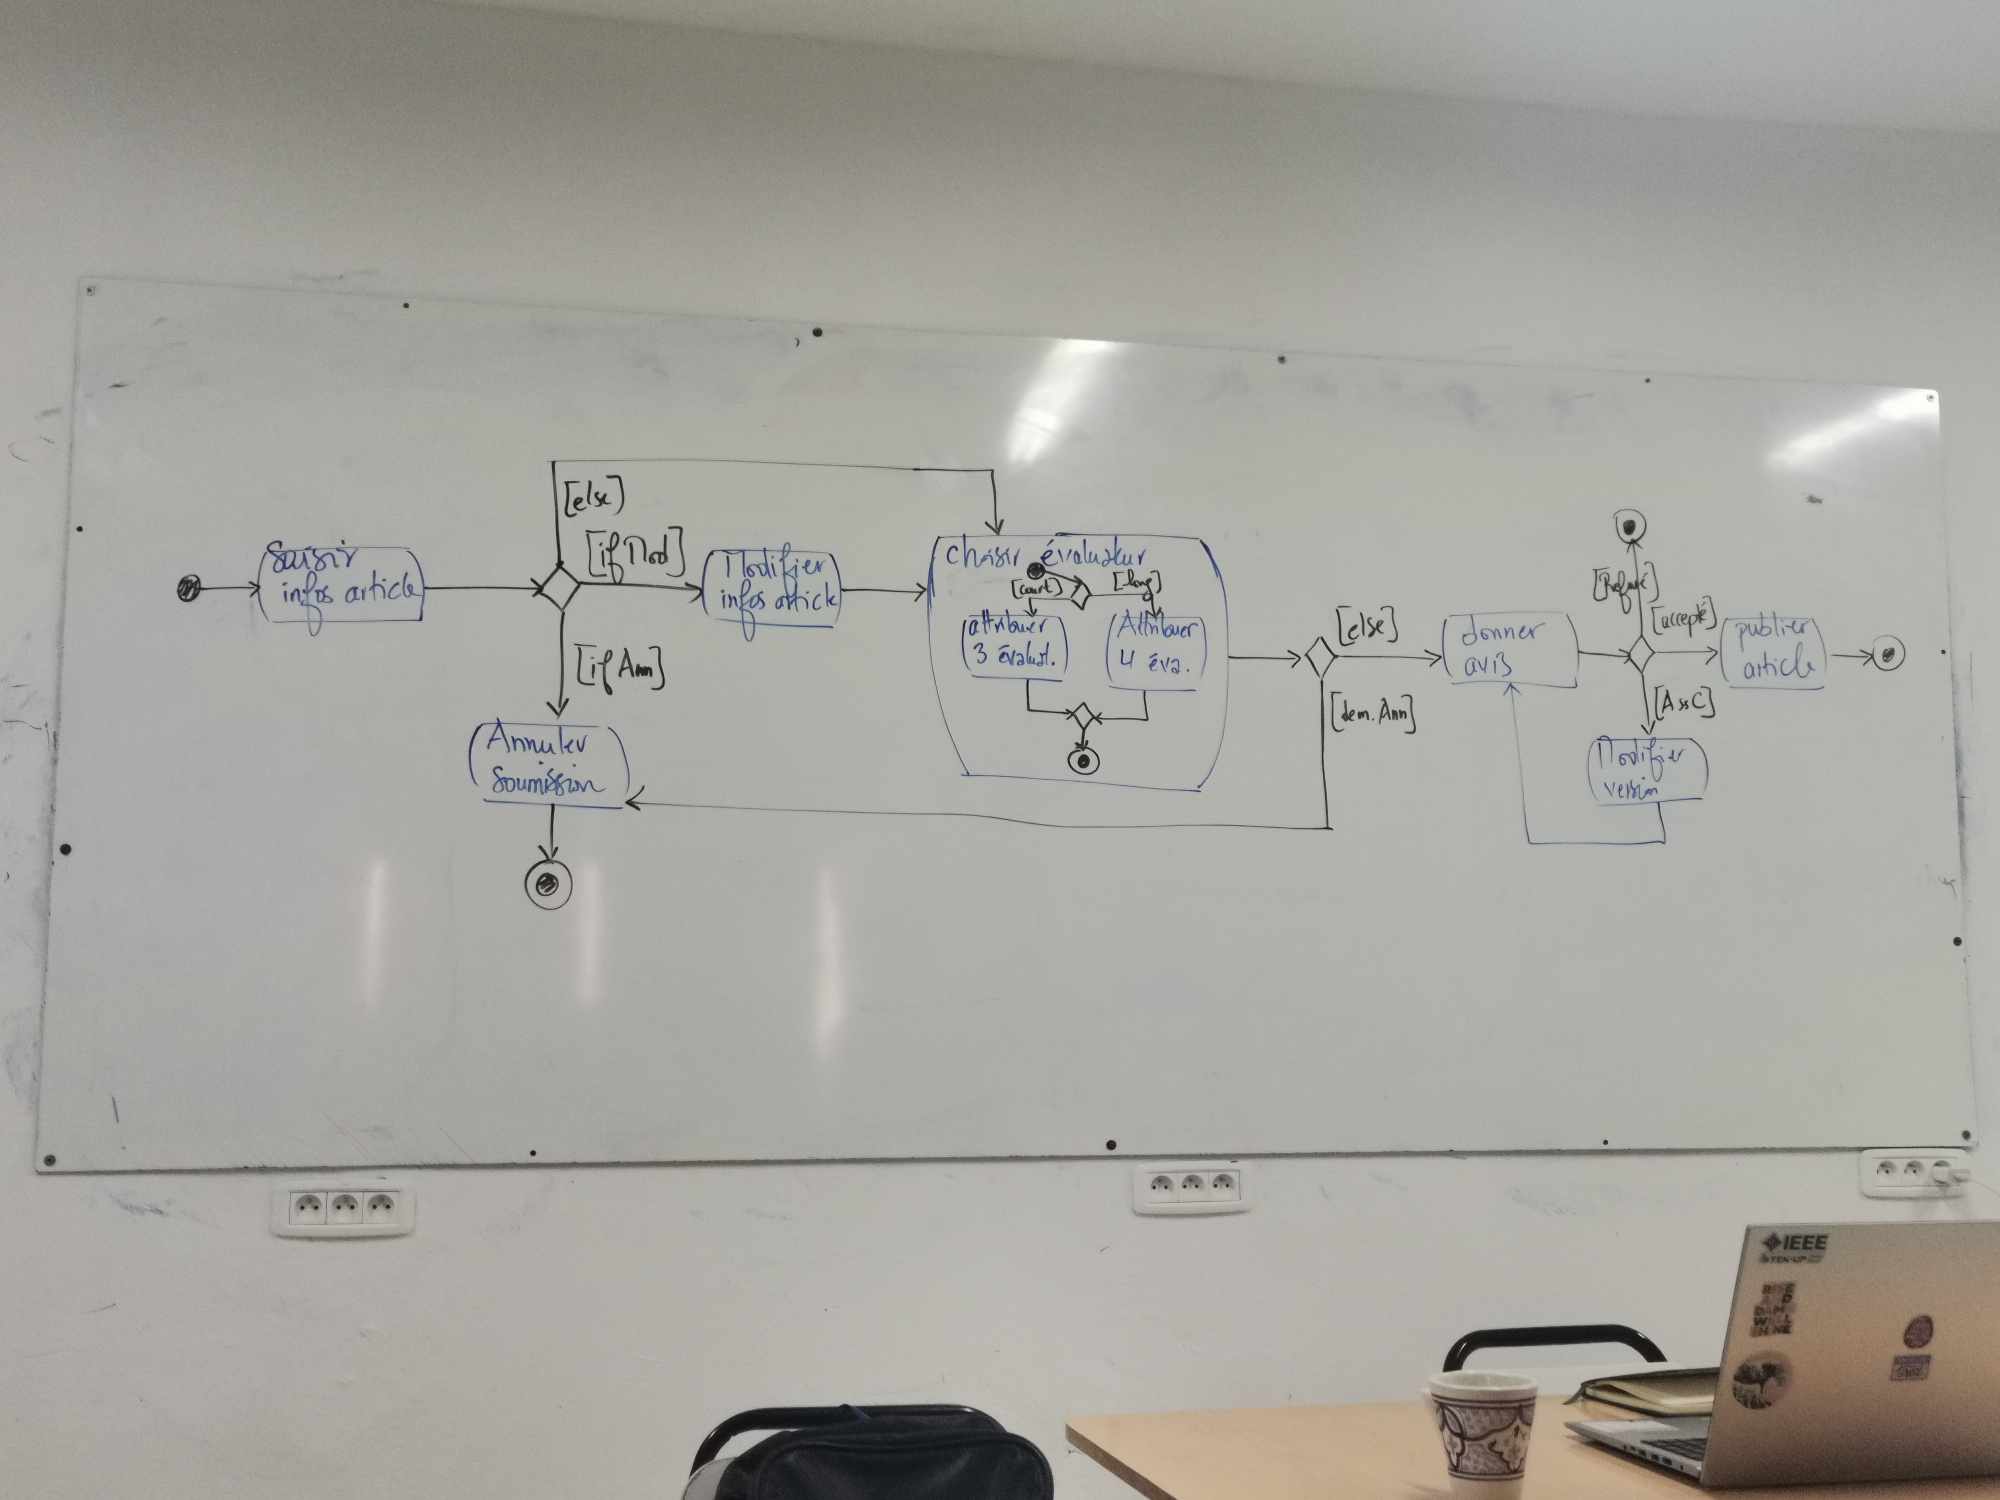 [else]
Saisir
infos article
[if Mod]
Modifier
infos article
[if Ann]
Annuler
Soumission
choisir évaluateur
[court]
[long]
attribuer
3 évaluat.
Attribuer
4 éva.
[else]
[dem. Ann]
donner
avis
[Refusé]
[accepté]
[AssC]
publier
article
Modifier
version
IEEE